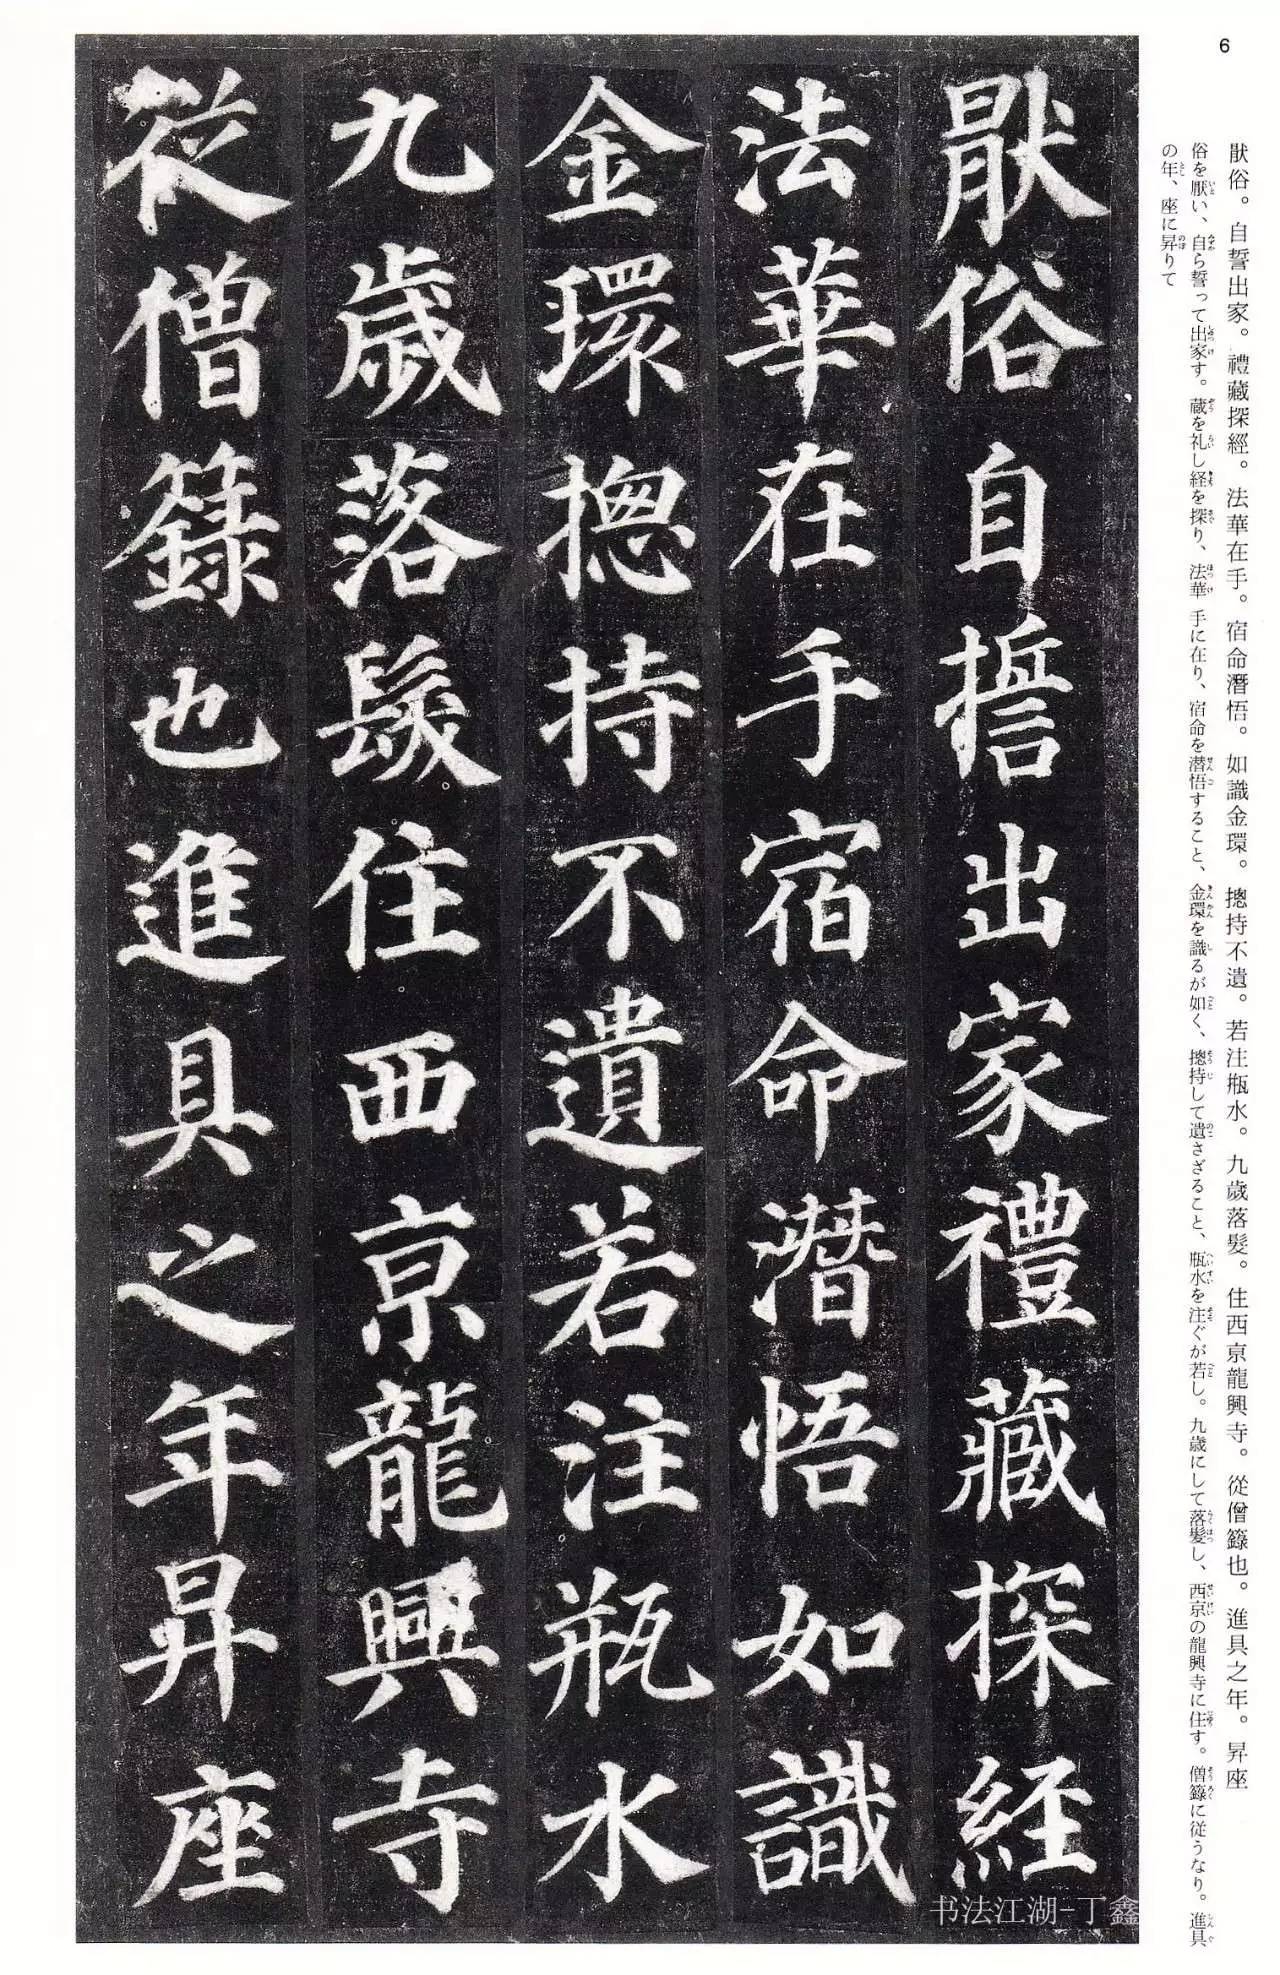 6
猒俗。自誓出家。禮藏探經。法華在手。宿命潛悟。如識金環。摠持不遺。若注瓶水。九歲落髮。住西京龍興寺。從僧籙也。進具之年。昇座
俗を厭い、自ら誓って出家す。蔵を礼し経を探り、法華 手に在り、宿命を潜悟すること、金環を識るが如く、摠持して遺さざること、瓶水を注ぐが若し。九歳にして落髪し、西京の龍興寺に住す。僧籙に従うなり。進具
の年、座に昇りて
猒俗自誓出家禮藏探経
法華在手宿命潛悟如識
金環摠持不遺若注瓶水
九歲落髮住西京龍興寺
從僧籙也進具之年昇座
书法江湖-丁鑫